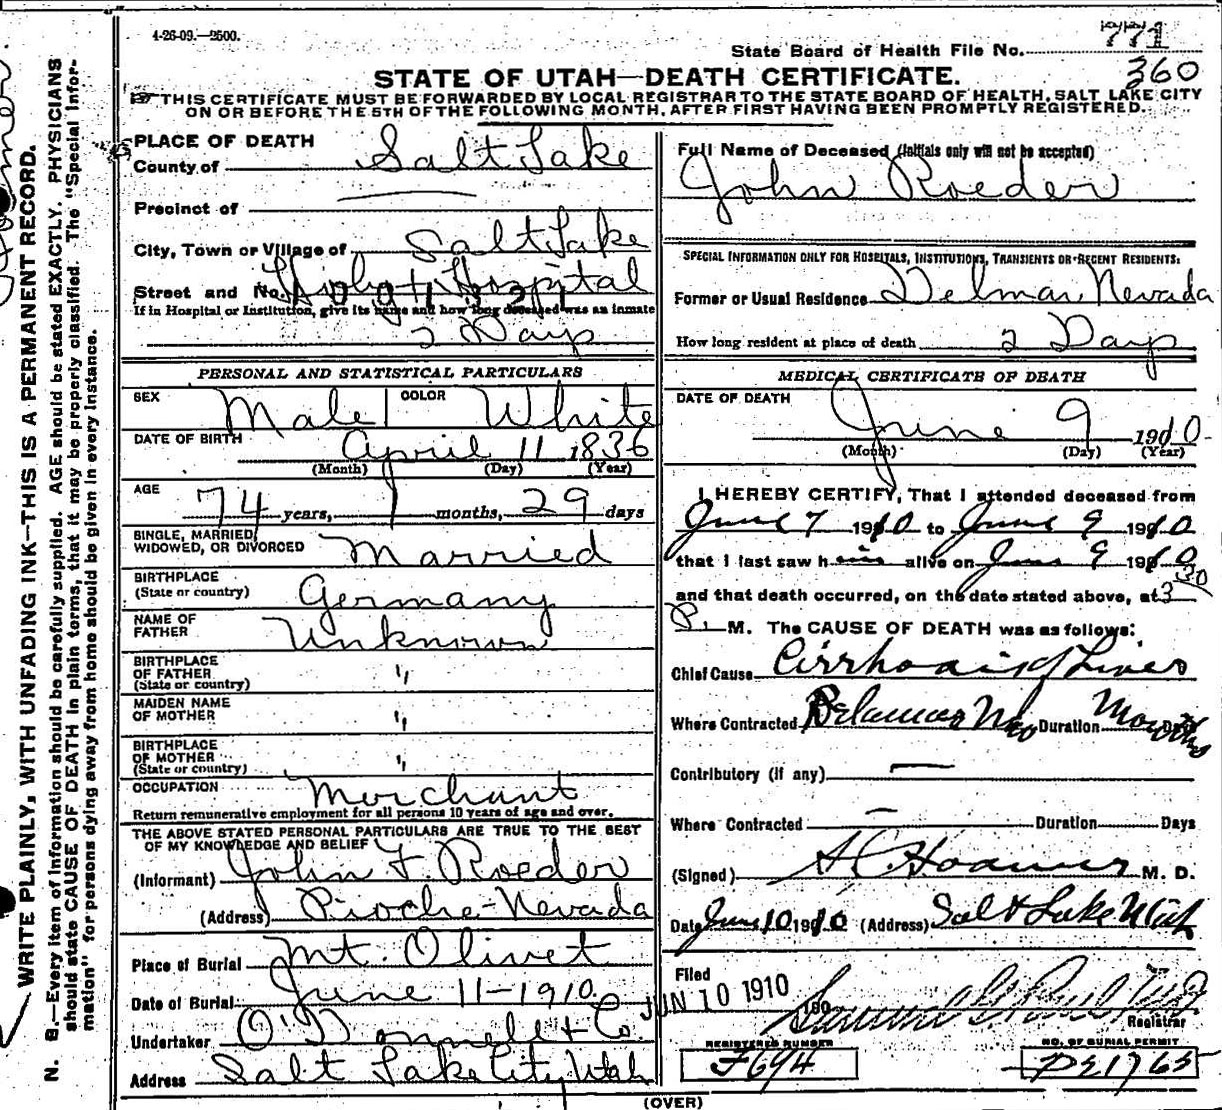 4-26-09.—2500.
State Board of Health File No. 771
360
STATE OF UTAH—DEATH CERTIFICATE.
THIS CERTIFICATE MUST BE FORWARDED BY LOCAL REGISTRAR TO THE STATE BOARD OF HEALTH, SALT LAKE CITY
ON OR BEFORE THE 5TH OF THE FOLLOWING MONTH, AFTER FIRST HAVING BEEN PROMPTLY REGISTERED.
WRITE PLAINLY, WITH UNFADING INK—THIS IS A PERMANENT RECORD.
N. B.—Every item of information should be carefully supplied. AGE should be stated EXACTLY. PHYSICIANS
should state CAUSE OF DEATH in plain terms, that it may be properly classified. The "Special Infor-
mation" for persons dying away from home should be given in every instance.
PLACE OF DEATH
County of Salt Lake
Precinct of
City, Town or Village of Salt Lake
Street and No. Hospital
If in Hospital or Institution, give its name and how long deceased was an inmate
2 Days
PERSONAL AND STATISTICAL PARTICULARS
SEX Male COLOR White
DATE OF BIRTH April 11 1836
(Month) (Day) (Year)
AGE
74 years, 1 months, 29 days
SINGLE, MARRIED,
WIDOWED, OR DIVORCED Married
BIRTHPLACE
(State or country) Germany
NAME OF
FATHER Unknown
BIRTHPLACE
OF FATHER "
(State or country)
MAIDEN NAME
OF MOTHER "
BIRTHPLACE
OF MOTHER "
(State or country)
OCCUPATION Merchant
Return remunerative employment for all persons 10 years of age and over.
THE ABOVE STATED PERSONAL PARTICULARS ARE TRUE TO THE BEST
OF MY KNOWLEDGE AND BELIEF
(Informant) John F. Roeder
(Address) Pioche-Nevada
Place of Burial Mt. Olivet
Date of Burial June 11-1910
Undertaker O'Donnell & Co
Address Salt Lake City, Utah
Full Name of Deceased (Initials only will not be accepted)
John Roeder
SPECIAL INFORMATION ONLY FOR HOSPITALS, INSTITUTIONS, TRANSIENTS OR RECENT RESIDENTS:
Former or Usual Residence Delmar, Nevada
How long resident at place of death 2 Days
MEDICAL CERTIFICATE OF DEATH
DATE OF DEATH
June 9 1910
(Month) (Day) (Year)
I HEREBY CERTIFY, That I attended deceased from
June 7 1910 to June 9 1910
that I last saw him alive on June 9 1910
and that death occurred, on the date stated above, at 3 30
P. M. The CAUSE OF DEATH was as follows:
Chief Cause Cirrhosis of Liver
Where Contracted Delamar Nev Duration Months Days
Contributory (if any) —
Where Contracted — Duration Days
(Signed) M. D.
Date June 10 1910 (Address) Salt Lake Utah
Filed JUN 10 1910 190
Registrar
REGISTERED NUMBER
F694
NO. OF BURIAL PERMIT
(OVER)